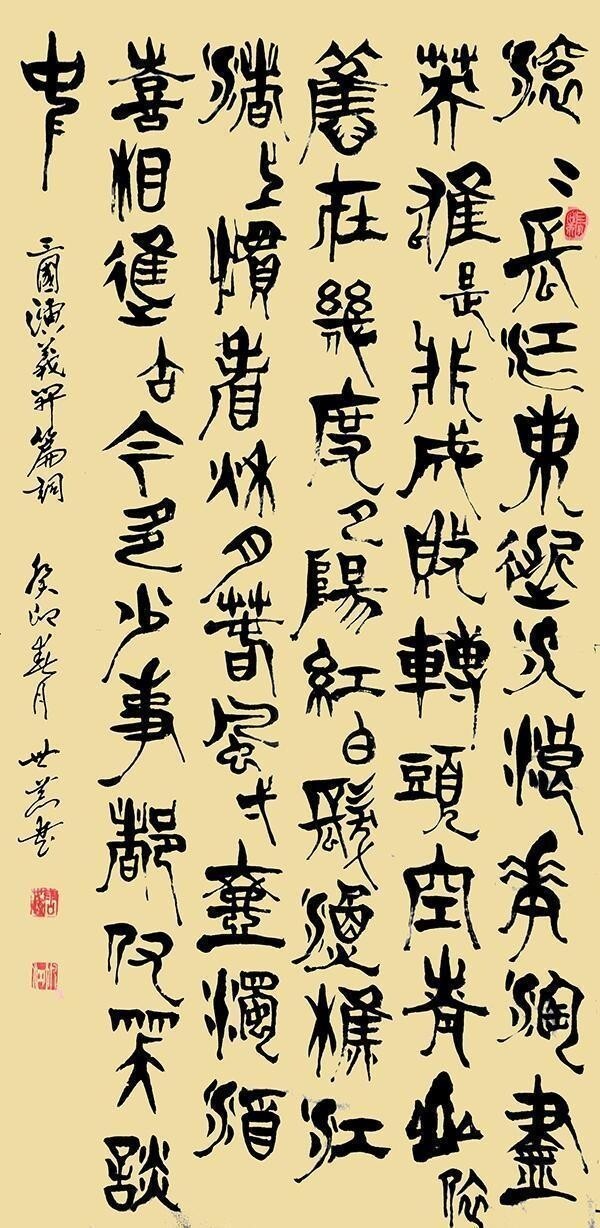 滾〻長江東逝水浪花淘盡
英雄是非成敗轉頭空青山依
舊在幾度夕陽紅白髮漁樵江
渚上慣看秋月春風弌壺濁酒
喜相逢古今多少事都付笑談
中
三國演義開篇詞 癸卯春月 世 書